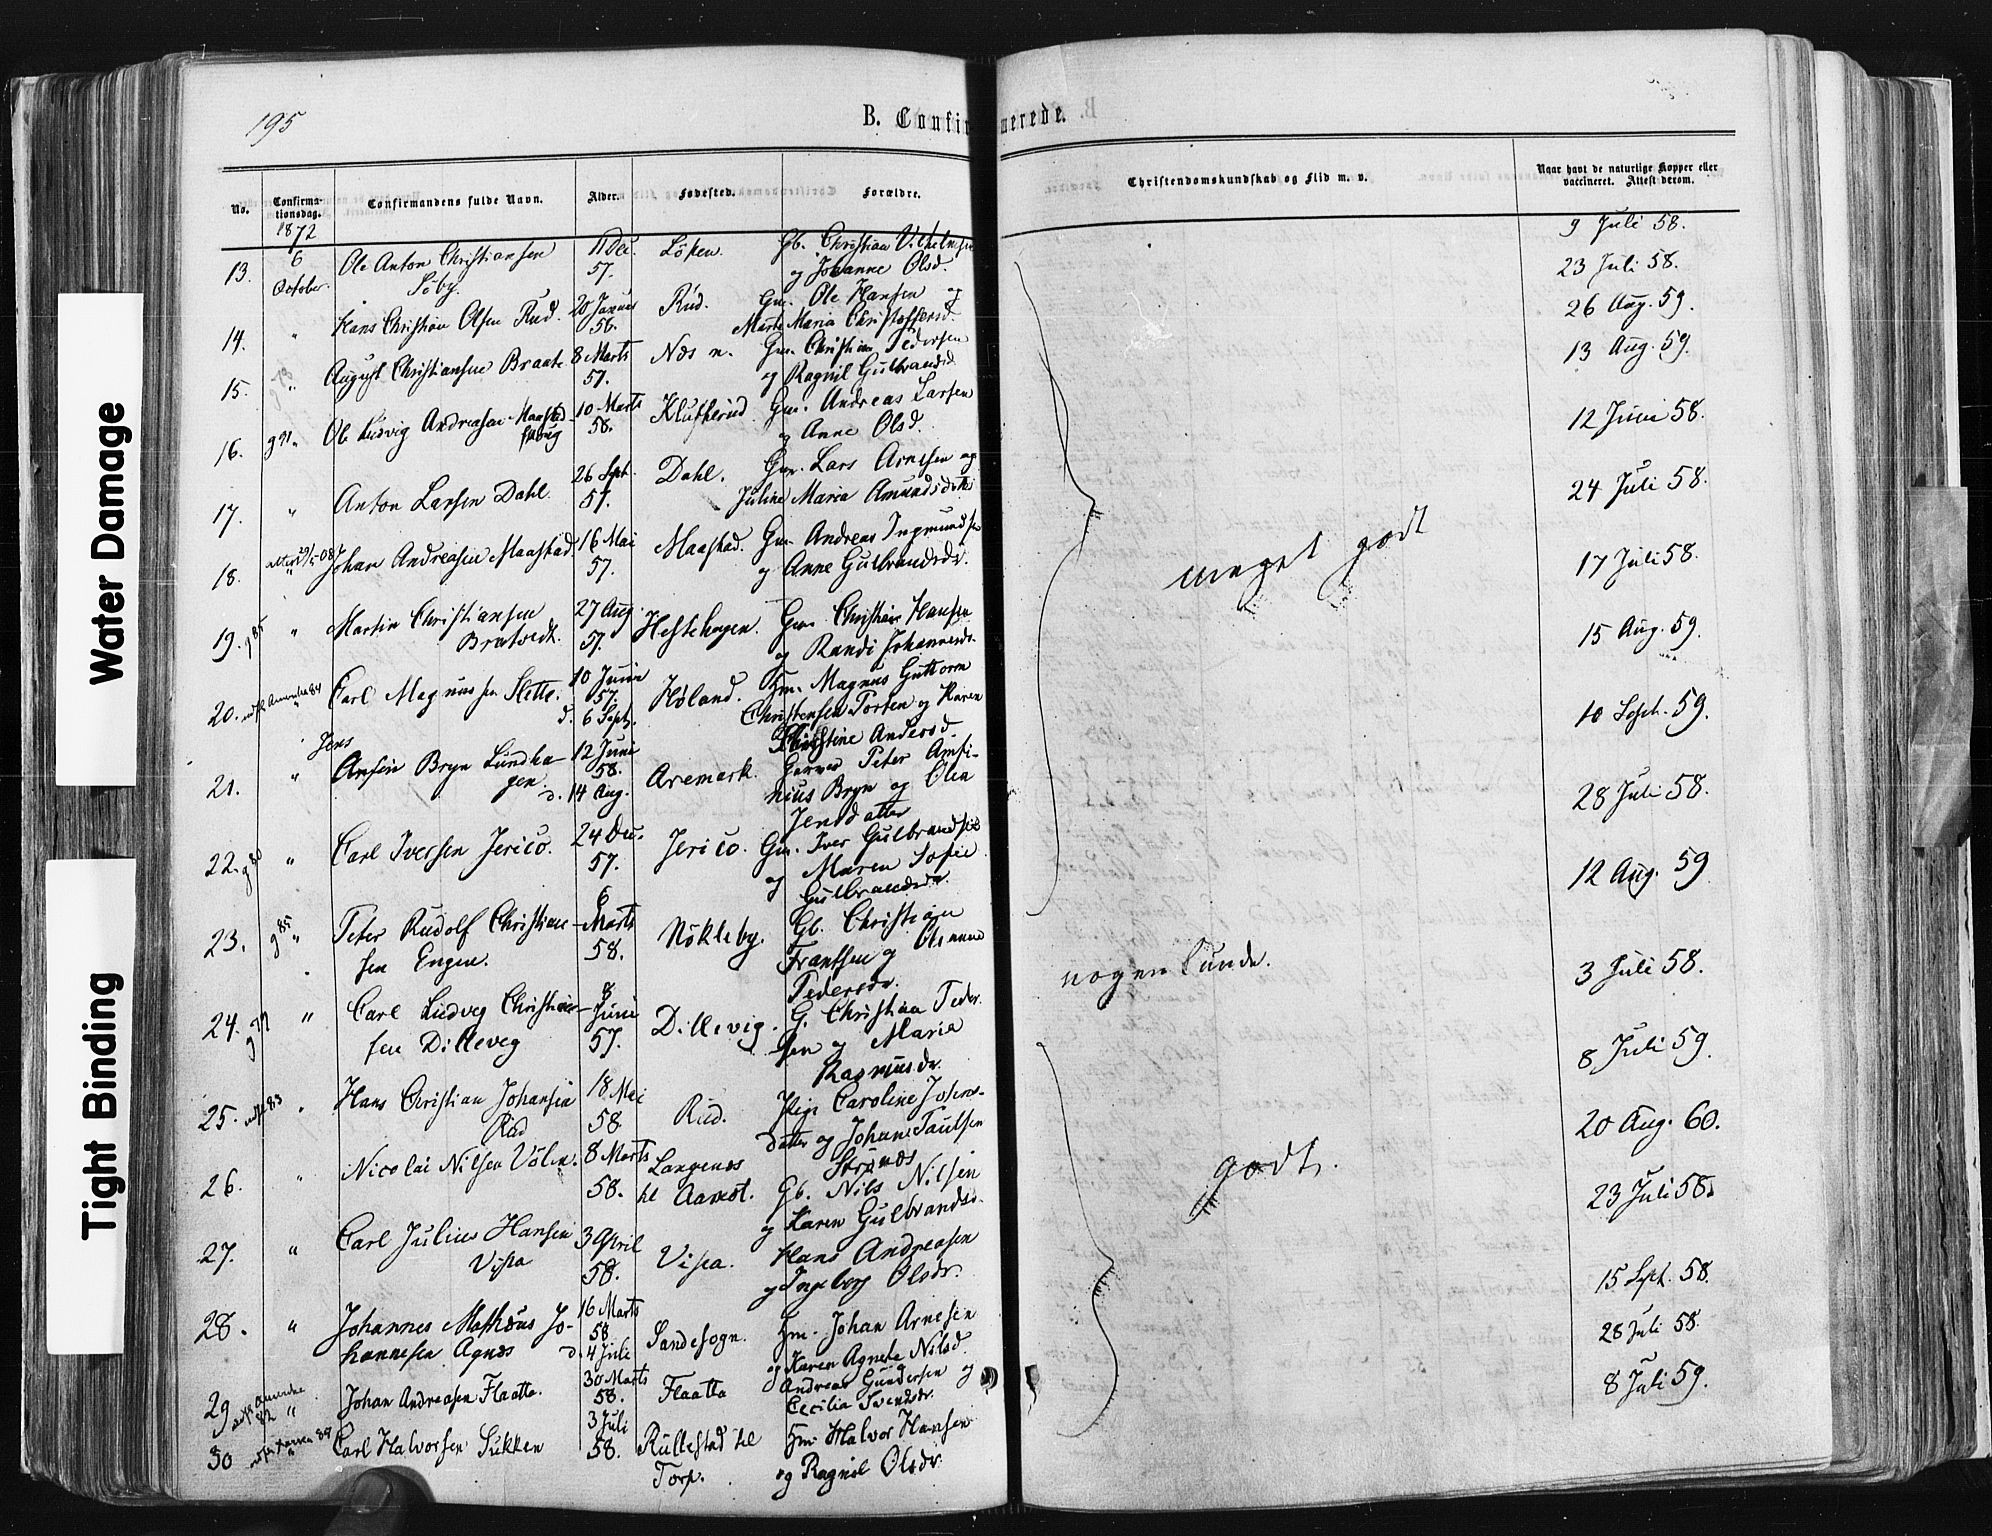 Water Damage
Tight Binding
195
B. Confirmerede.
No.
Confirma-
tionsdag.
Confirmandens fulde Navn.
Alder.
Fødested.
Forældre.
Christendomskundskab og Flid m. v.
Naar havt de naturlige Kopper eller
vaccineret. Attest derom.
1872
13. 6 October Ole Anton Christiansen
Søby.
11 Dec. 57. Løken. Gb. Christian Vilhelmsen
og Johanne Olsd.
9 Juli 58.
14. " Hans Christian Olsen Rud. 20 Januar 58. Rud. Gm. Ole Hansen og
Marte Maria Christoffersd.
23 Juli 58.
15. " August Christiansen Braate 8 Marts 57. Næs n. Gm. Christian Pedersen
og Ragnil Gulbrandsd.
26 Aug. 59.
16. Ole Ludvig Andreasen Maastad-
skoug
10 Marts 58. Klufterud Gm. Andreas Larsen
og Anne Olsd.
13 Aug. 59.
17. " Anton Larsen Dahl. 26 Sept. 57. Dahl. Gm. Lars Arnesen og
Juline Maria Amundsdatt.
12 Juni 58.
18. Johan Andreasen Maastad. 16 Mai 57. Maastad. Gm. Andreas Ingmundsen
og Anne Gulbrandsdr.
24 Juli 58.
19. g 85 " Martin Christiansen
Bratvedt.
27 Aug 57. Hestehagen. Gm. Christian Hansen
og Randi Johannesdr.
17 Juli 58.
20. Carl Magnussen Slette. 10 Juni 57.
d. 6 Sept.
Høland. Hm. Magnus Guttorm
Christensen Torten og Karen
Christine Andersd.
15 Aug. 59.
21. " Jens
Ansen Bryn Lundha-
gen.
12 Juni 58.
d. 14 Aug.
Aremark. Peter Amti-
nius Bryn og Olea
Jensdatter
10 Sept. 59.
22. g 80 " Carl Iversen Jerico. 24 Dec. 57. Jerico. Gm. Iver Gulbrandsen
og Maren Sofie
Gulbrandsdr.
28 Juli 58.
23. g 85 " Peter Rudolf Christian-
sen Engen.
6 Marts 58. Nökleby. Gb. Christian
Frantsen og
Pedersdr.
12 Aug. 59
24. " Carl Ludvig Christian-
sen Dillevig
8 Juni 57. Dillevig. G. Christian Peder-
sen og Maria
Rasmusdr.
3 Juli 58.
25. Hans Christian Johansen
Rud
18 Mai 58. Rud. Pige Caroline Johns-
datter og Johan Paulsen
Strønæs
8 Juli 59.
26. " Nicolai Nilsen Vølen. 8 Marts 58. Langenæs
til Aamot.
Gb. Nils Nilsen
og Karen Gulbrandsd.
20 Aug. 60.
27. " Carl Julius Hansen
Vista
3 April 58. Visca. Hans Andreasen
og Ingeborg Olsdr.
23 Juli 58.
28. " Johannes Mathæus Jo-
hannesen Agnæs
16 Marts 58
d. 4 Juli
Sandesogn. Hm. Johan Arnesen
og Karen Agnete Nilsd.
15 Sept. 58.
29 " Johan Andreasen Flaatta. 30 Marts 58. Flaatta Andreas Gundersen og
Cecilia Svendsdr.
28 Juli 58.
30 " Carl Halvorsen Sukken 3 Juli 58. Rullestad til
Torp.
Hm. Halvor Hansen
og Ragnil Olsdr.
8 Juli 59.
meget godt
nogenlunde.
godt.